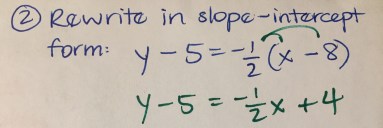 ② Rewrite in slope-intercept
form: y - 5 = -1/2 (x - 8)
y - 5 = -1/2 x + 4